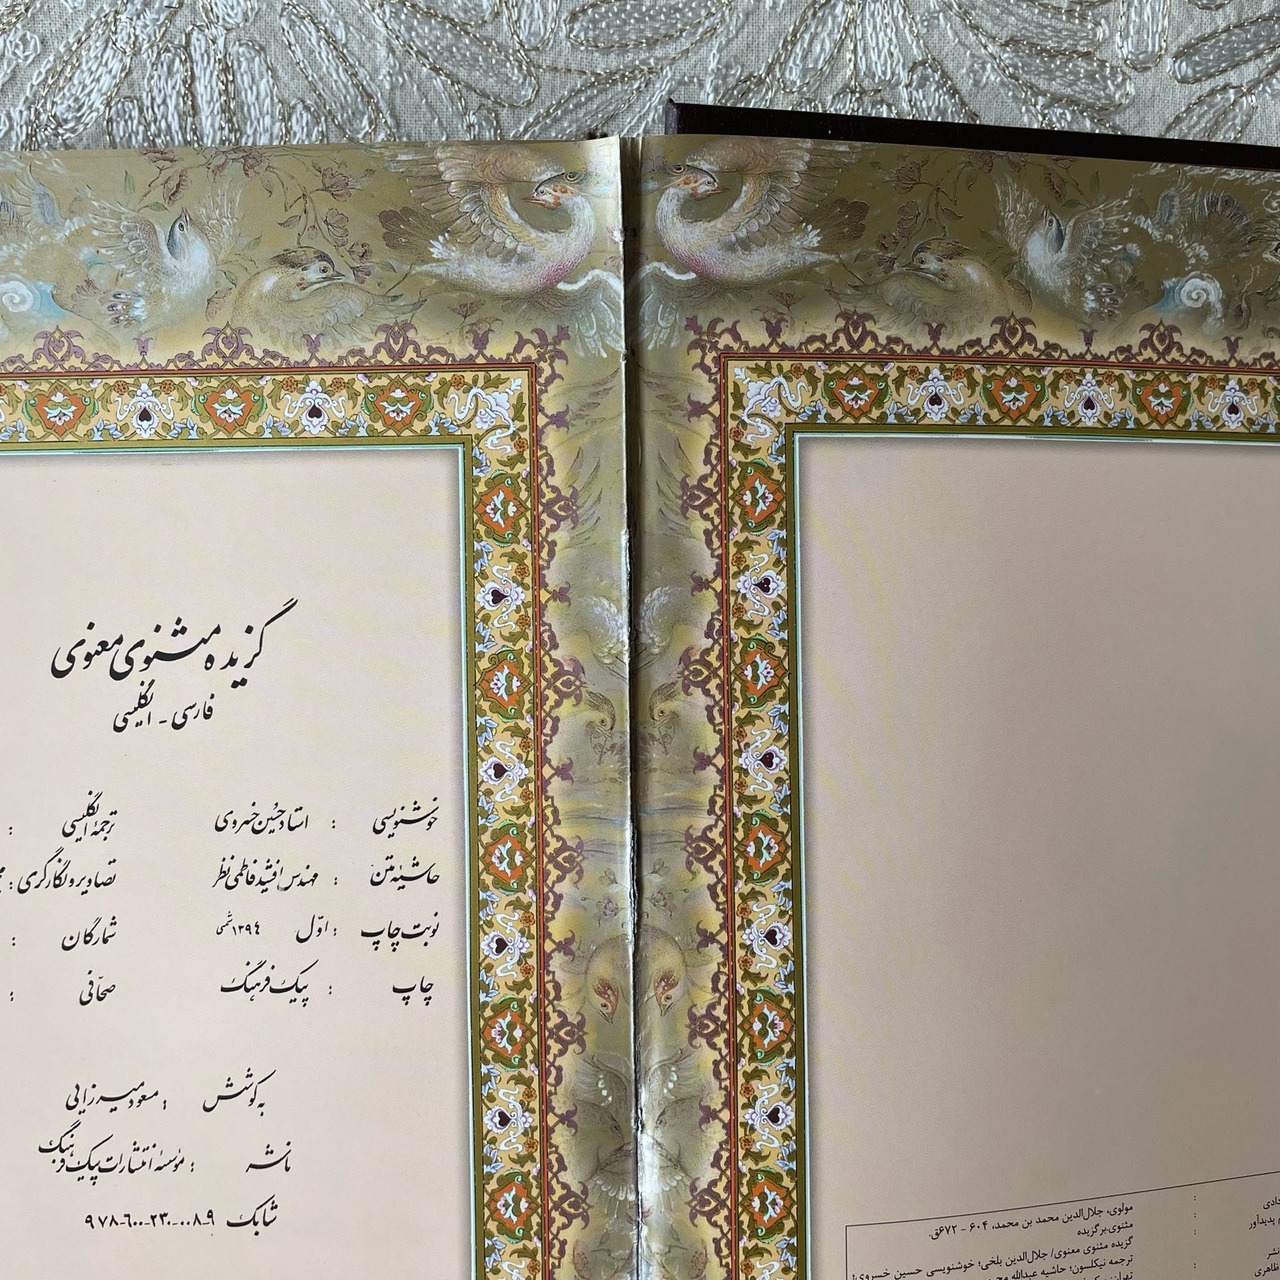 گزیده مثنوی معنوی
فارسی - انگلیسی
خوشنویسی : استاد حسین خسروی ترجمهٔ انگلیسی :
حاشیهٔ متن : مهندس افشید فاطمی نظر تصاویر و نگارگری :
نوبت چاپ : اوّل ۱۳۹٤ شمسی شمارگان :
چاپ : پیک فرهنگ صحافی :
به کوشش : مسعود میرزایی
ناشر : مؤسسه انتشارات پیک فرهنگ
شابک ۹۷۸-۶۰۰-۲۳۰-۰۰۸-۹
: مولوی، جلال‌الدین محمد بن محمد، ۶۰۴ - ۶۷۲ق.
پدیدآور : مثنوی.برگزیده
: گزیده مثنوی معنوی/ جلال‌الدین بلخی؛ خوشنویسی حسین خسروی؛
ترجمه نیکلسون؛ حاشیه عبدالله